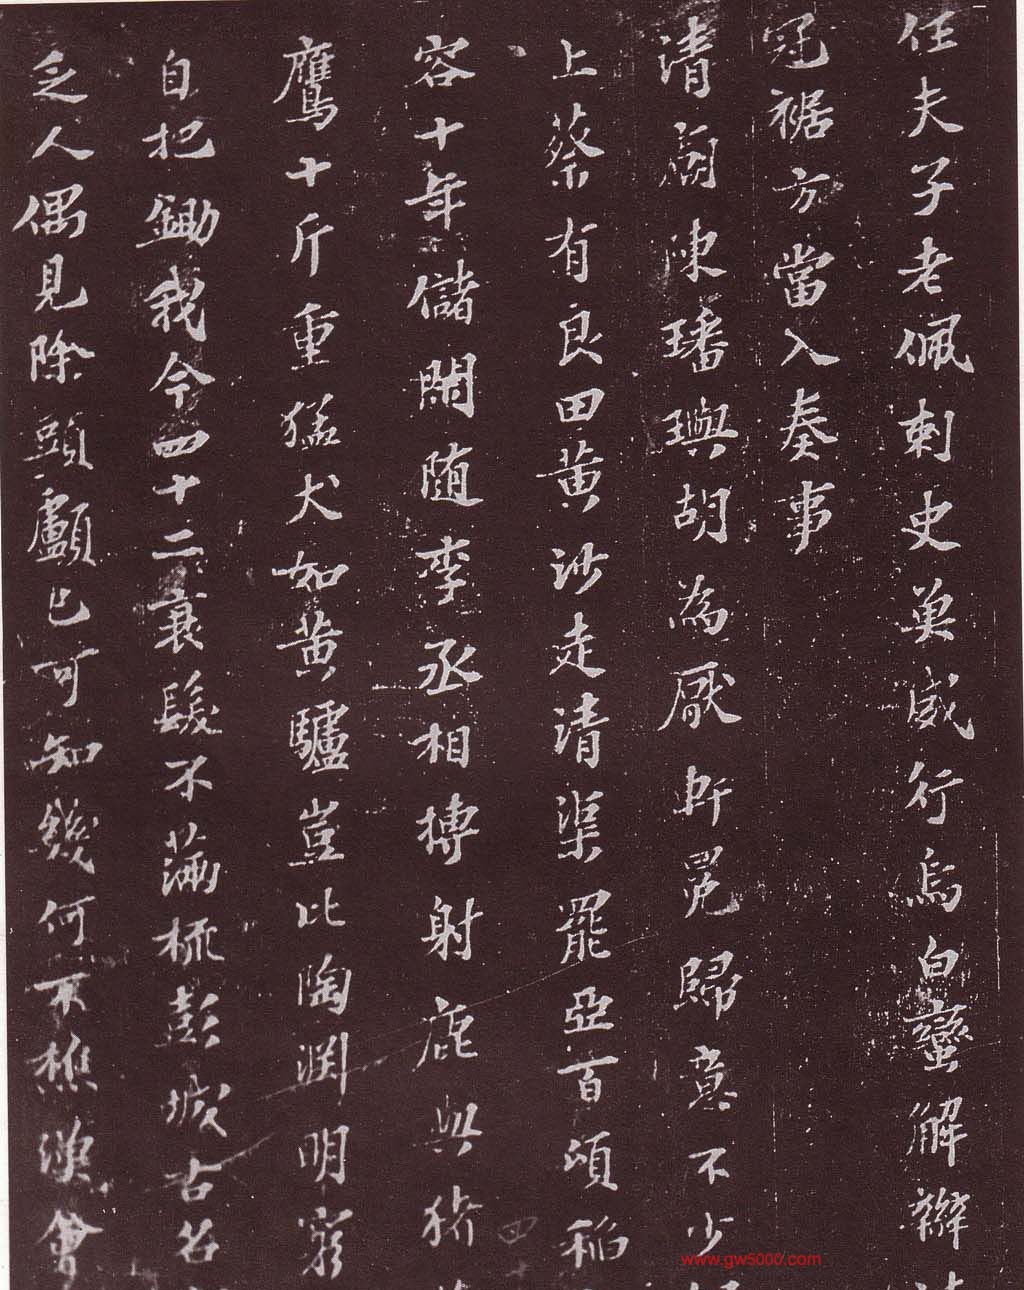 任夫子老佩刺史魚威行烏白蠻解辮
冠裾方當入奏事
清廟陳璠璵胡為厭軒冕歸意不少
上蔡有良田黃沙走清渠罷亞百頃稻
容十年儲閑隨李丞相搏射鹿與豬
鷹十斤重猛犬如黃驢豈比陶淵明窮
自把鋤我今四十二衰髮不滿梳彭城古名
乏人偶見除頭顱已可知幾何不樵漁會
www.gw5000.com